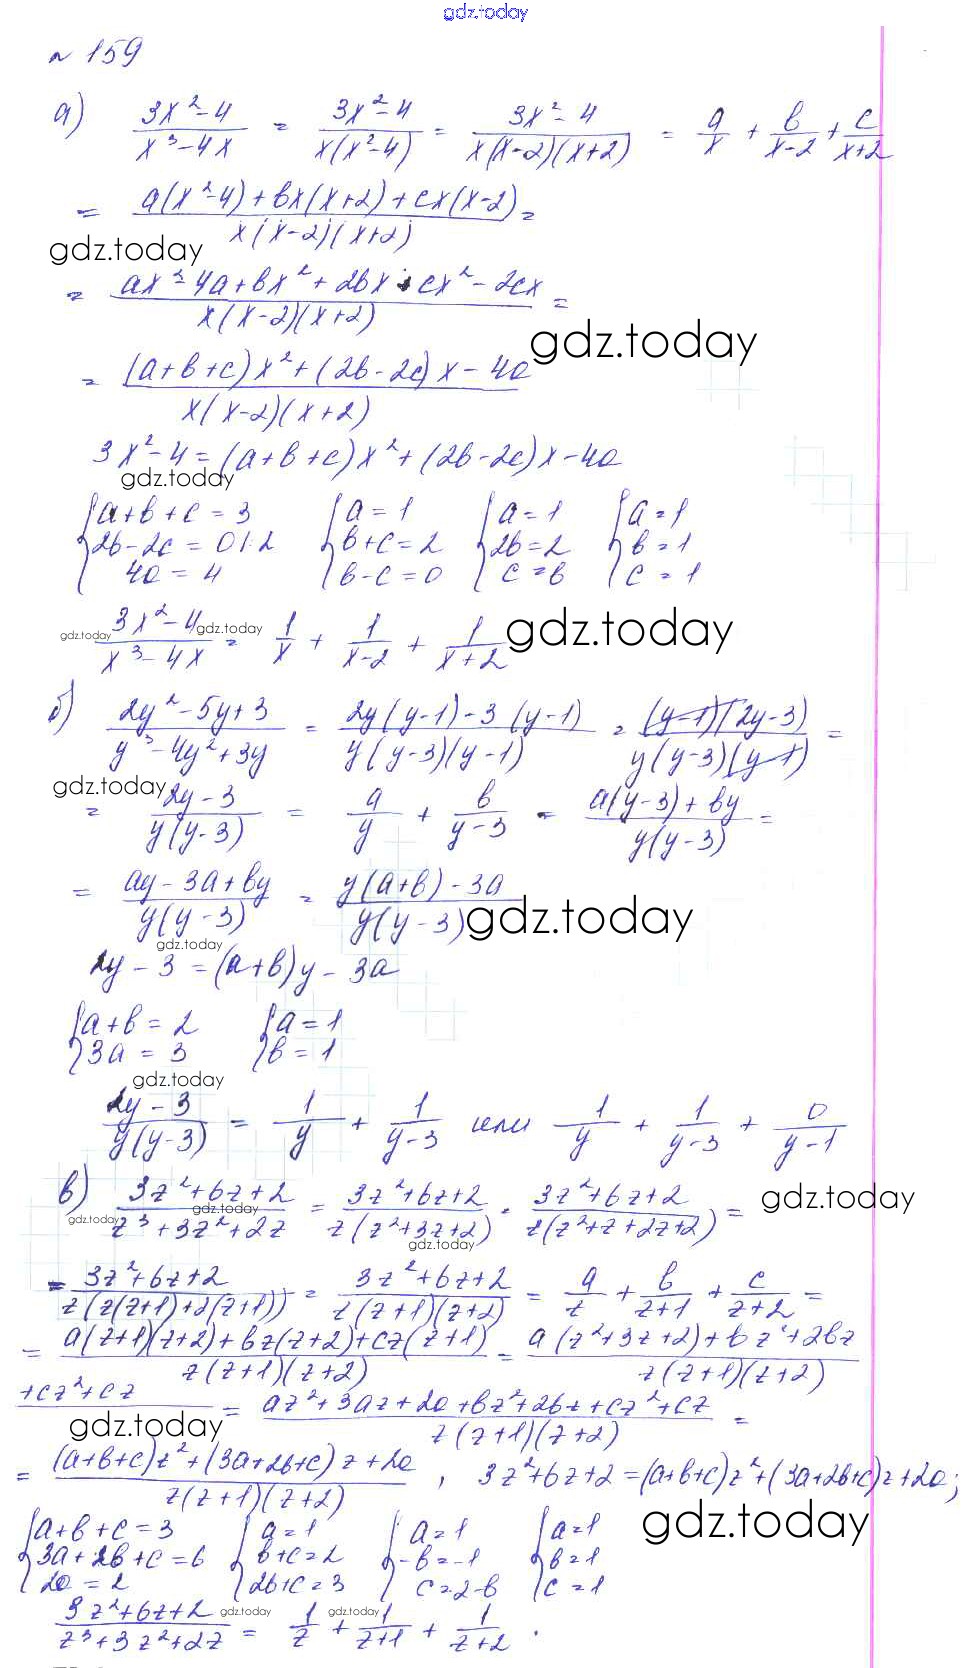 gdz.today
№ 159
а) (3x²-4)/(x³-4x) = (3x²-4)/(x(x²-4)) = (3x²-4)/(x(x-2)(x+2)) = a/x + b/(x-2) + c/(x+2)
= (a(x²-4)+bx(x+2)+cx(x-2))/(x(x-2)(x+2)) =
gdz.today
= (ax²-4a+bx²+2bx+cx²-2cx)/(x(x-2)(x+2)) =
gdz.today
= ((a+b+c)x²+(2b-2c)x-4a)/(x(x-2)(x+2))
3x²-4=(a+b+c)x²+(2b-2c)x-4a
gdz.today
{a+b+c=3 {a=1 {a=1 {a=1
{2b-2c=0|:2 {b+c=2 {2b=2 {b=1
{4a=4 {b-c=0 {c=b {c=1
gdz.today (3x²-4)/(x³-4x) gdz.today = 1/x + 1/(x-2) + 1/(x+2) gdz.today
б) (2y²-5y+3)/(y³-4y²+3y) = (2y(y-1)-3(y-1))/(y(y-3)(y-1)) = ((y-1)(2y-3))/(y(y-3)(y-1)) =
gdz.today
= (2y-3)/(y(y-3)) = a/y + b/(y-3) = (a(y-3)+by)/(y(y-3)) =
= (ay-3a+by)/(y(y-3)) = (y(a+b)-3a)/(y(y-3)) gdz.today
gdz.today
2y-3=(a+b)y-3a
{a+b=2 {a=1
{3a=3 {b=1
gdz.today
(2y-3)/(y(y-3)) = 1/y + 1/(y-3) или 1/y + 1/(y-3) + 0/(y-1)
в) (3z²+6z+2)/(z³+3z²+2z) = (3z²+6z+2)/(z(z²+3z+2)) = (3z²+6z+2)/(z(z²+z+2z+2)) = gdz.today
gdz.today gdz.today gdz.today
= (3z²+6z+2)/(z(z(z+1)+2(z+1))) = (3z²+6z+2)/(z(z+1)(z+2)) = a/z + b/(z+1) + c/(z+2) =
= (a(z+1)(z+2)+bz(z+2)+cz(z+1))/(z(z+1)(z+2)) = (a(z²+3z+2)+bz²+2bz)/(z(z+1)(z+2))
+cz²+cz = (az²+3az+2a+bz²+2bz+cz²+cz)/(z(z+1)(z+2)) =
gdz.today
= ((a+b+c)z²+(3a+2b+c)z+2a)/(z(z+1)(z+2)), 3z²+6z+2=(a+b+c)z²+(3a+2b+c)z+2a;
gdz.today
{a+b+c=3 {a=1 {a=1 {a=1
{3a+2b+c=6 {b+c=2 {-b=-1 {b=1
{2a=2 {2b+c=3 {c=2-b {c=1
(3z²+6z+2)/(z³+3z²+2z) gdz.today = 1/z + gdz.today 1/(z+1) + 1/(z+2).